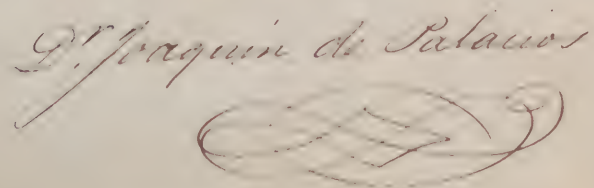 Dr. Joaquin de Palacios